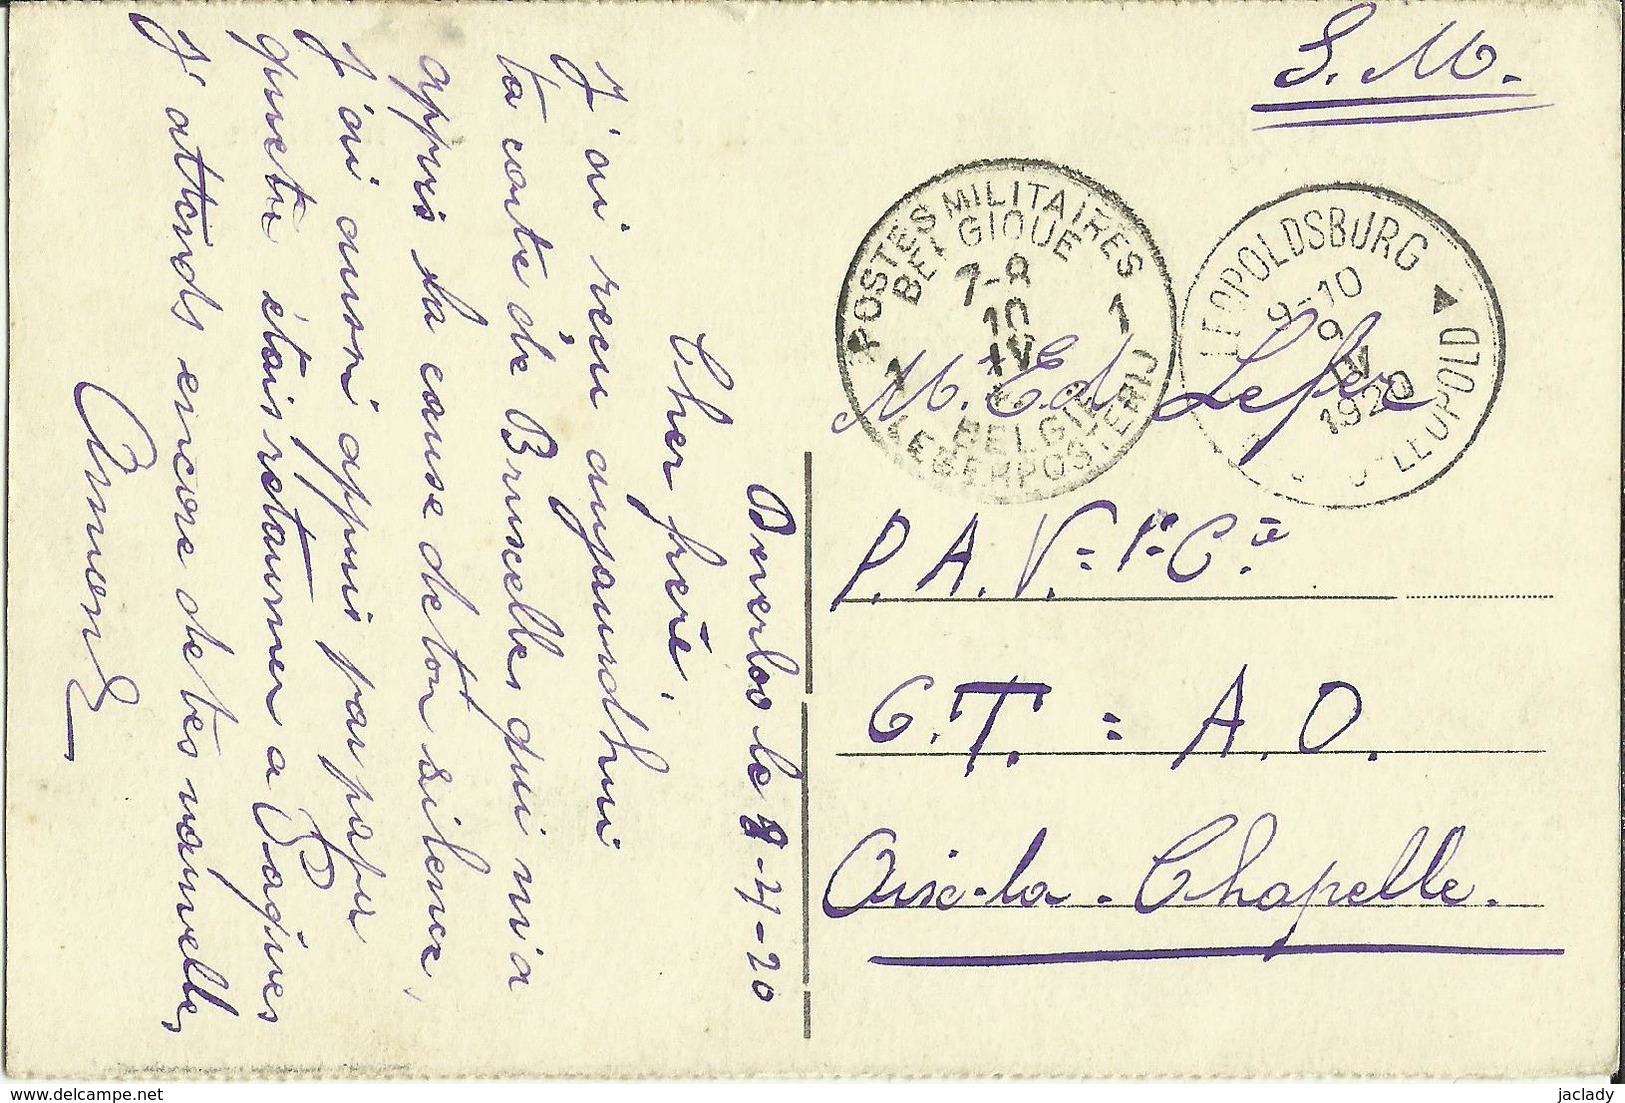 S. M.
POSTES MILITAIRES
BELGIQUE
7-8
10
IV
1 1
BELGIE
LEGERPOSTERIJ
LEOPOLDSBURG
9-10
9
IV
1920
LEOPOLD
M. Ed. Lefer
P. A. V. = 1e Cie
C. T. = A. O.
Aix-la-Chapelle.
Beverloo le 9-4-20
Cher frère,
J'ai reçu aujourdhui
ta carte de Bruxelles qui m'a
appris la cause de ton silence,
J'ai aussi appris par papa
que tu étais retourner a
J'attends encore de tes nouvelles,
jaclady